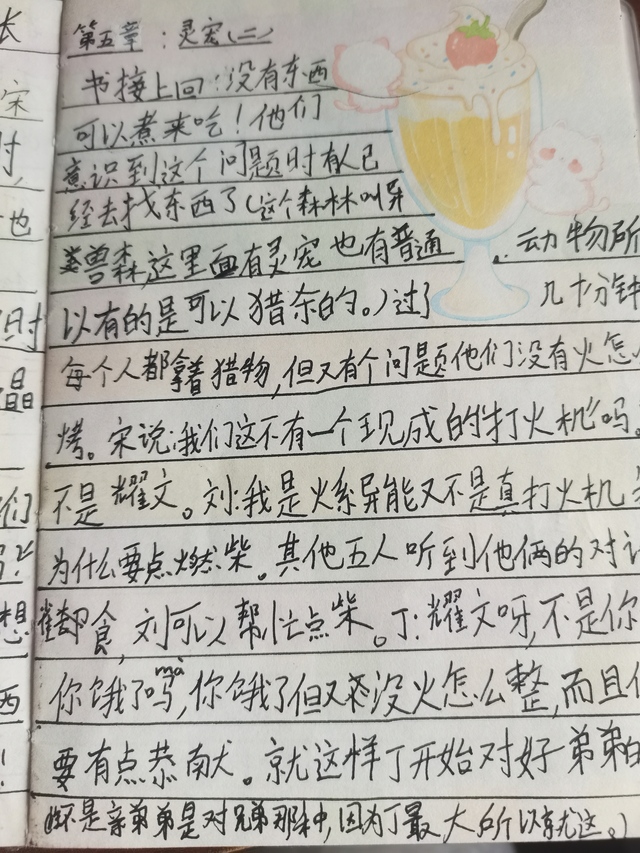 第五章：灵宠（二）
书接上回：没有东西
可以煮来吃！他们
意识到这个问题时有人已
经去找东西了（这个森林叫异
兽森，这里面有灵宠也有普通动物所
以有的是可以猎杀的。）过了几十分钟
每个人都拿着猎物，但又有个问题他们没有火怎
烤。宋说：我们这不有一个现成的“打火机”吗。
不是耀文。刘：我是火系异能又不是真打火机
为什么要点燃柴。其他五人听到他俩的对
食，刘可以帮忙点柴。丁：耀文呀，不是你
你饿了吗mà，你饿了但又没火怎么整，而且
要有点恭献。就这样丁开始对好弟弟的
不是亲弟弟是对兄弟那种，因为丁最大所以就这。）
长
宋
时
也
但时
晶
们
想
西
！